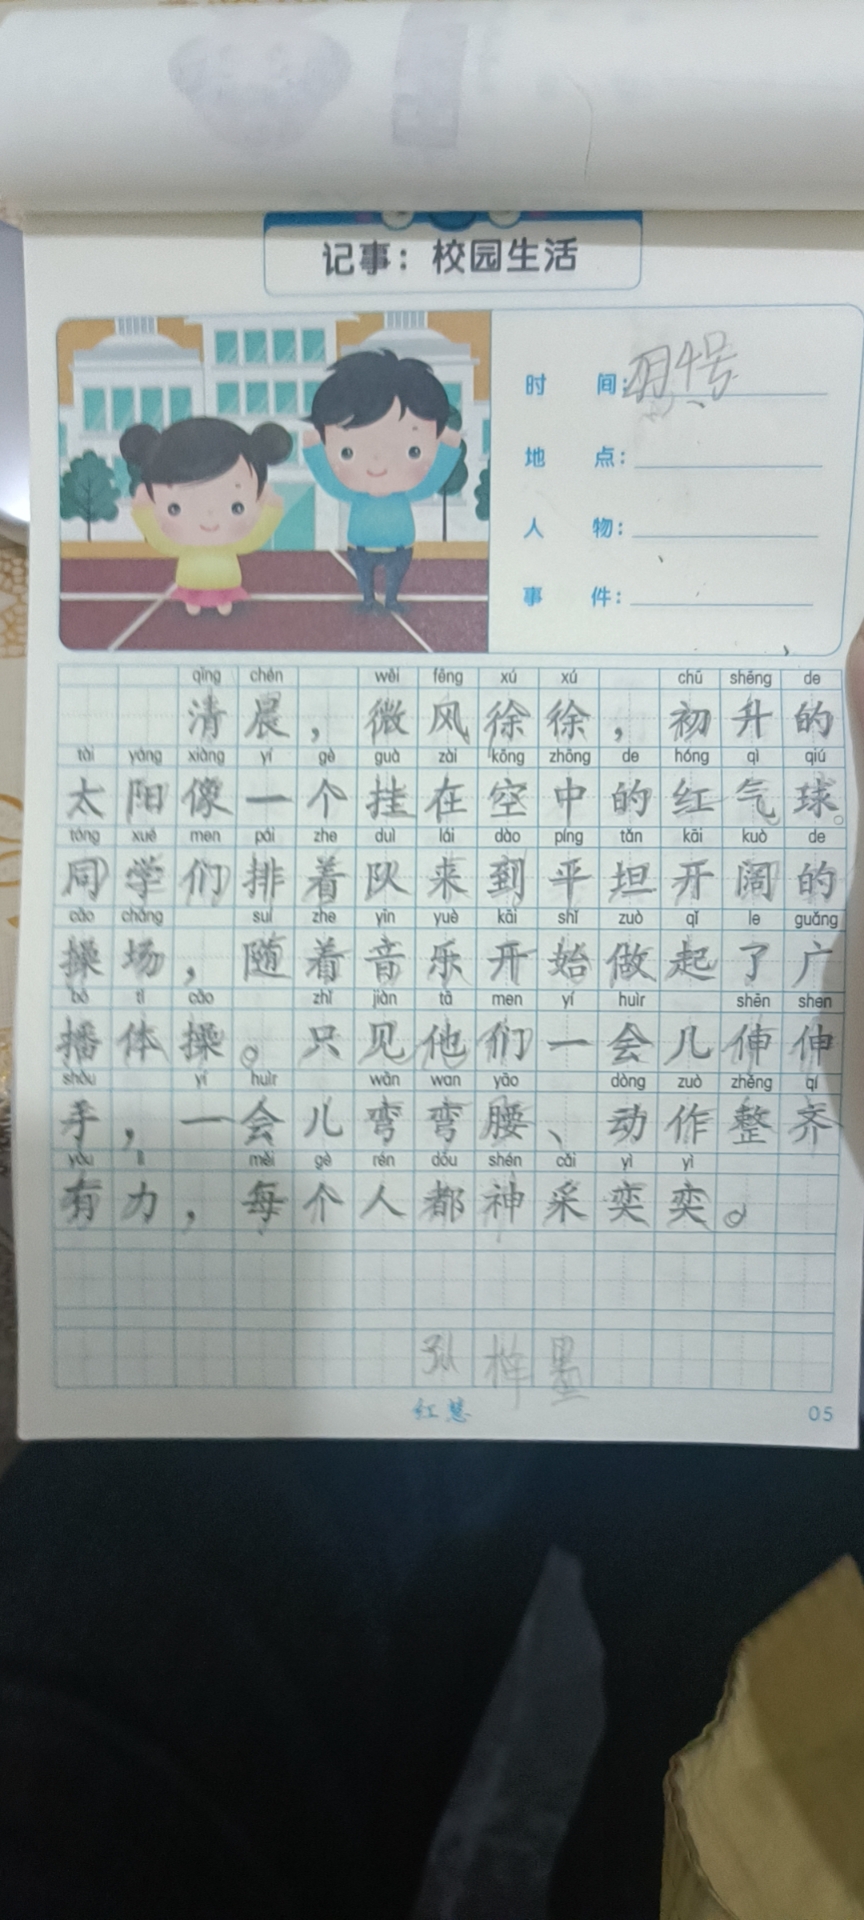 记事：校园生活
时 间：月4号
地 点：
人 物：
事 件：
qīng chén wēi fēng xú xú chū shēng de
清晨，微风徐徐，初升的
tài yáng xiàng yí gè guà zài kōng zhōng de hóng qì qiú
太阳像一个挂在空中的红气球。
tóng xué men pái zhe duì lái dào píng tǎn kāi kuò de
同学们排着队来到平坦开阔的
cāo chǎng suí zhe yīn yuè kāi shǐ zuò qǐ le guǎng
操场，随着音乐开始做起了广
bō tǐ cāo zhǐ jiàn tā men yí huìr shēn shen
播体操。只见他们一会儿伸伸
shǒu yí huìr wān wan yāo dòng zuò zhěng qí
手，一会儿弯弯腰、动作整齐
yǒu lì měi gè rén dōu shén cǎi yì yì
有力，每个人都神采奕奕。
孙梓墨
红慧
05